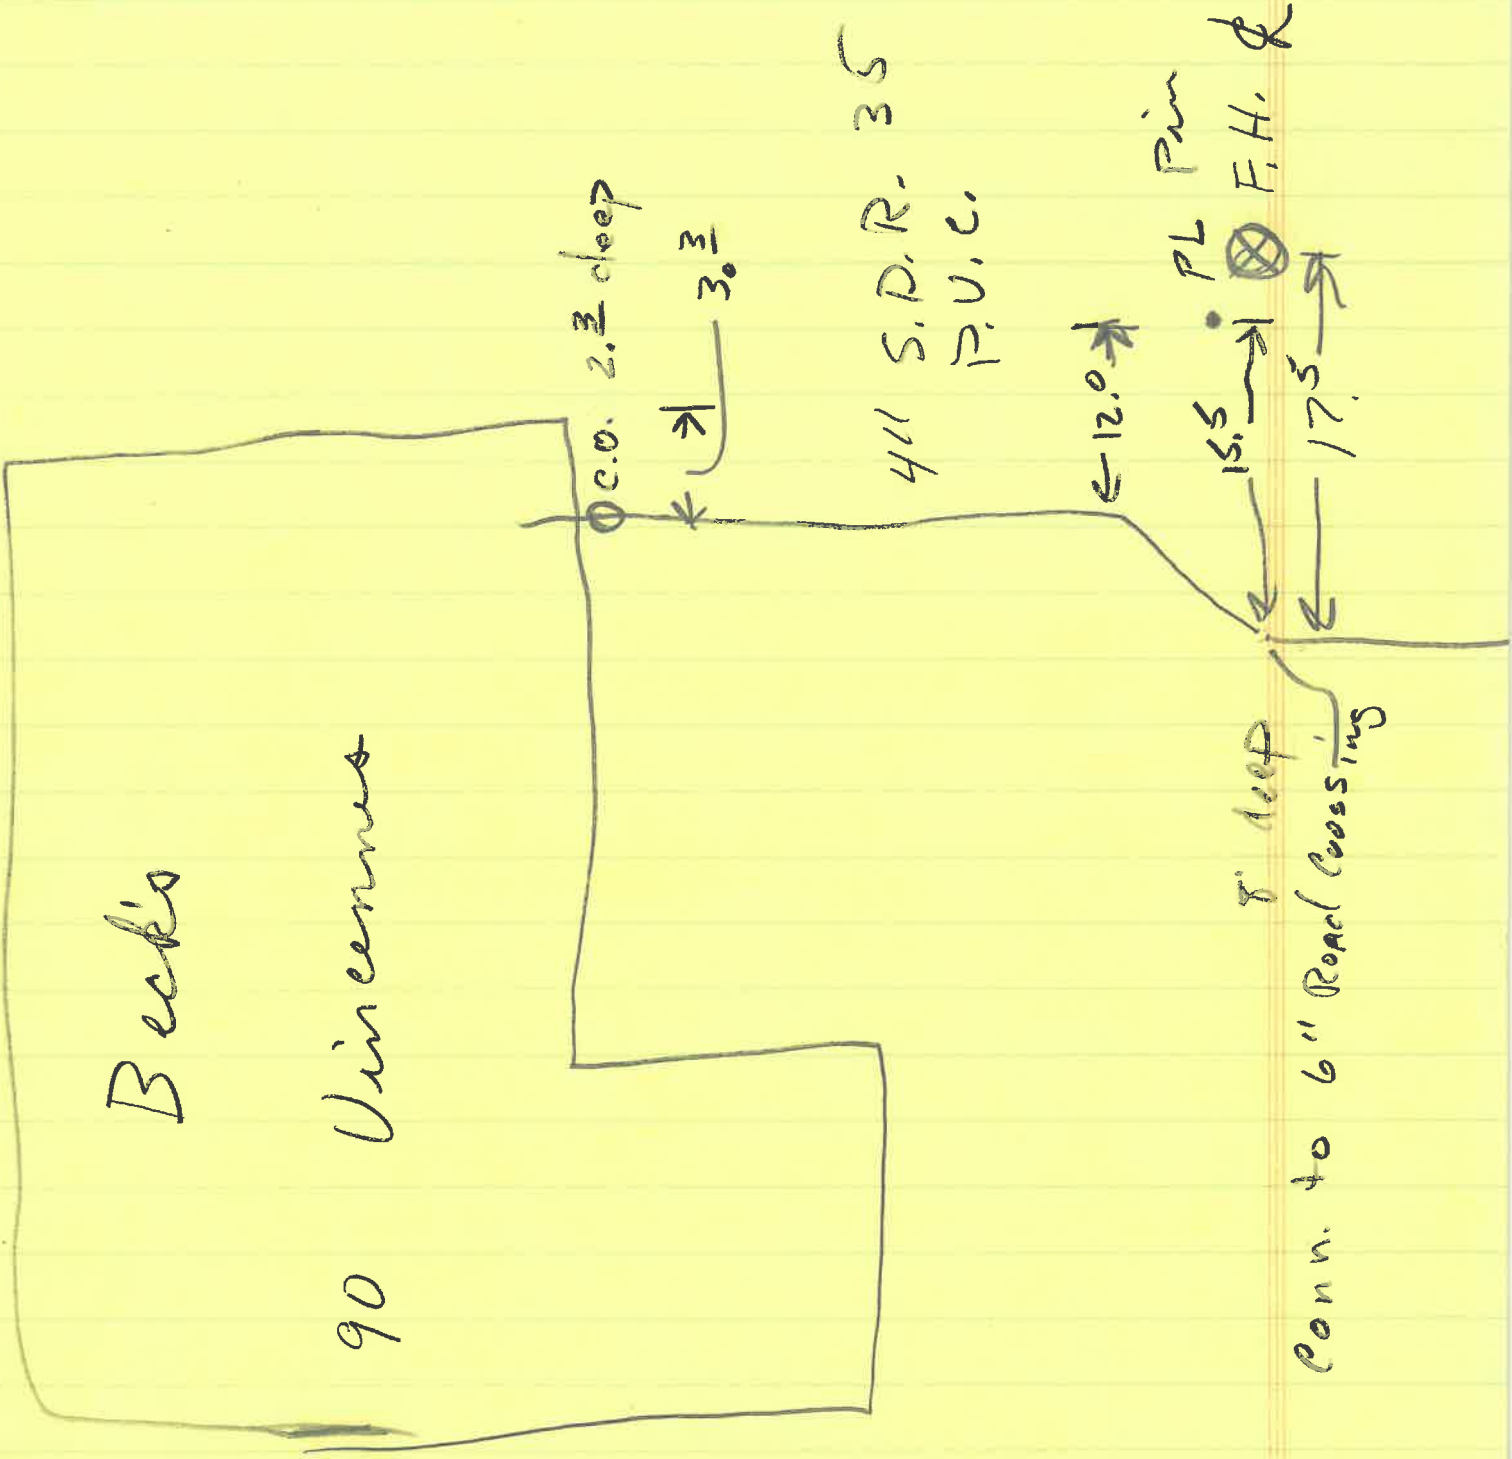 Beck's
90 Vincennes
C.O. 2.3 deep
3.3
4" S.D.R. 35
P.V.C.
12.0
PL Pin
15.5
F.H.
17.5
8' deep
Conn. to 6" Road Crossing